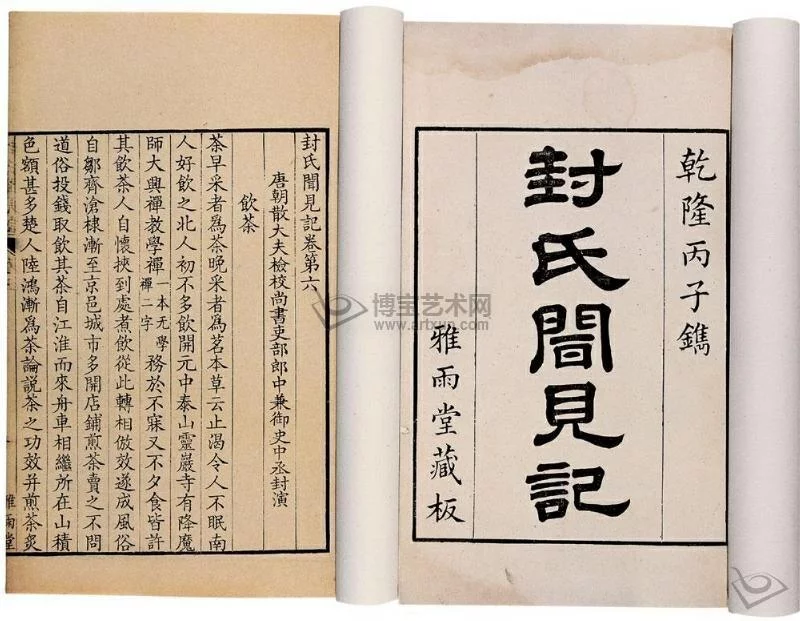 乾隆丙子鐫
封氏聞見記
雅雨堂藏板
封氏聞見記卷第六
唐朝散大夫檢校尚書吏部郎中兼御史中丞封演
飲茶
茶早采者爲茶晚采者爲茗本草云止渴令人不眠南
人好飲之北人初不多飲開元中泰山靈巖寺有降魔
師大興禪教學禪一本无學禪二字務於不寐又不夕食皆許
其飲茶人自懷挾到處煮飲從此轉相倣效遂成風俗
自鄒齊滄棣漸至京邑城市多開店鋪煎茶賣之不問
道俗投錢取飲其茶自江淮而來舟車相繼所在山積
色額甚多楚人陸鴻漸爲茶論說茶之功效并煎茶炙
雅雨堂
博宝艺术网
www.artxun.com